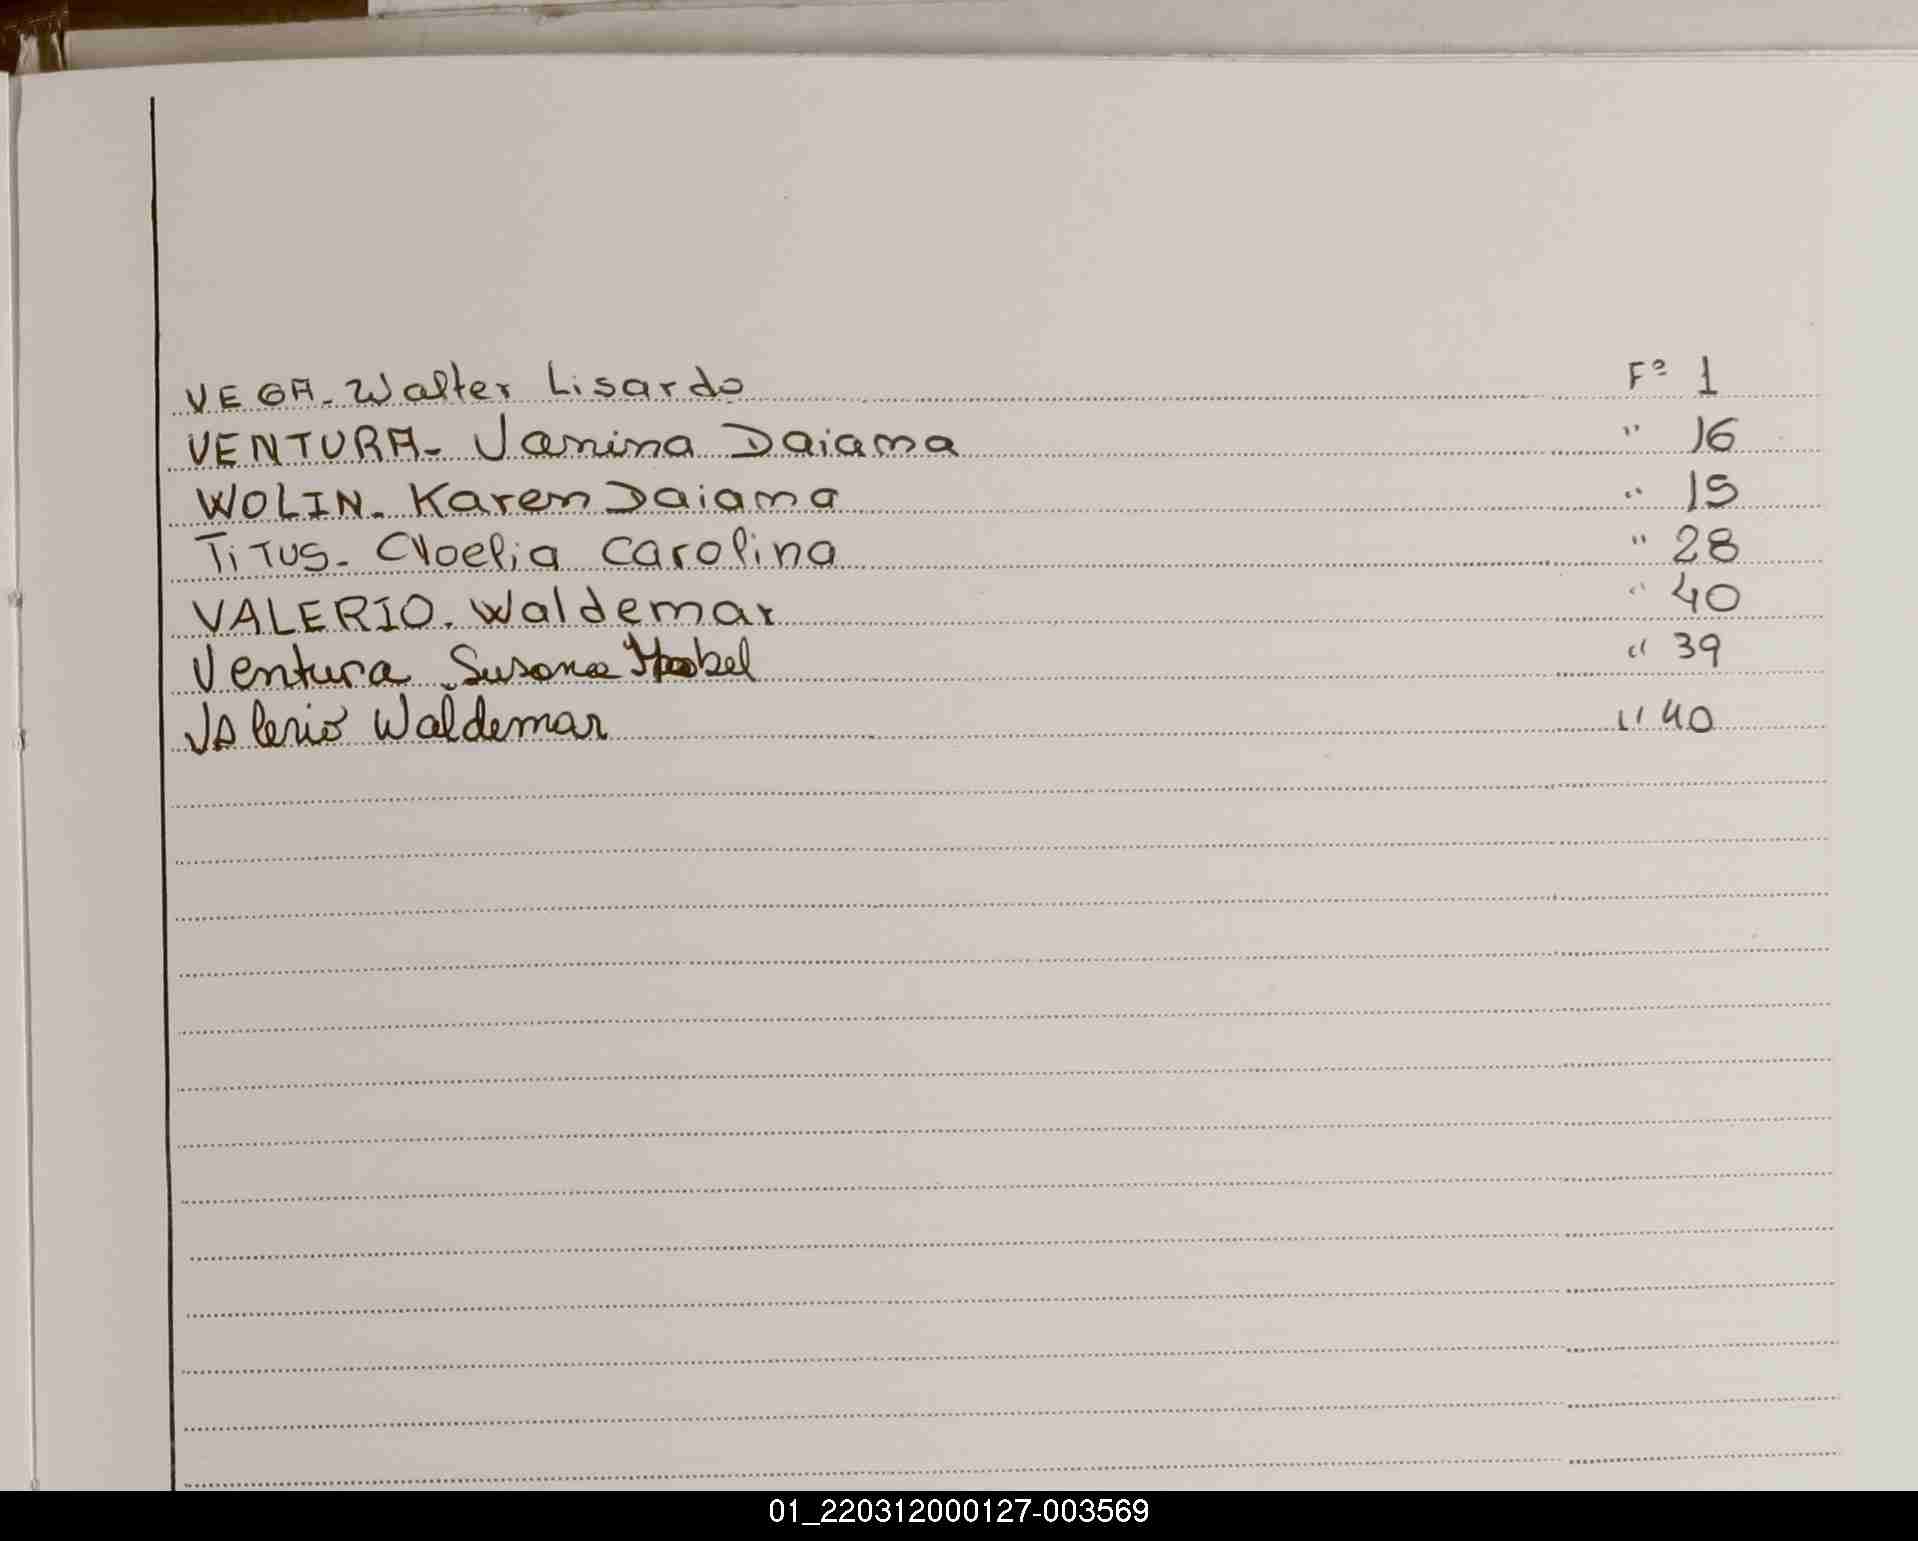 VEGA. Walter Lisardo F° 1
VENTURA- Janina Daiana " 16
WOLIN. Karen Daiana " 15
TiTUS- Noelia Carolina " 28
VALERIO. Waldemar " 40
Ventura Susana " 39
Valerio Waldemar " 40
01_220312000127-003569